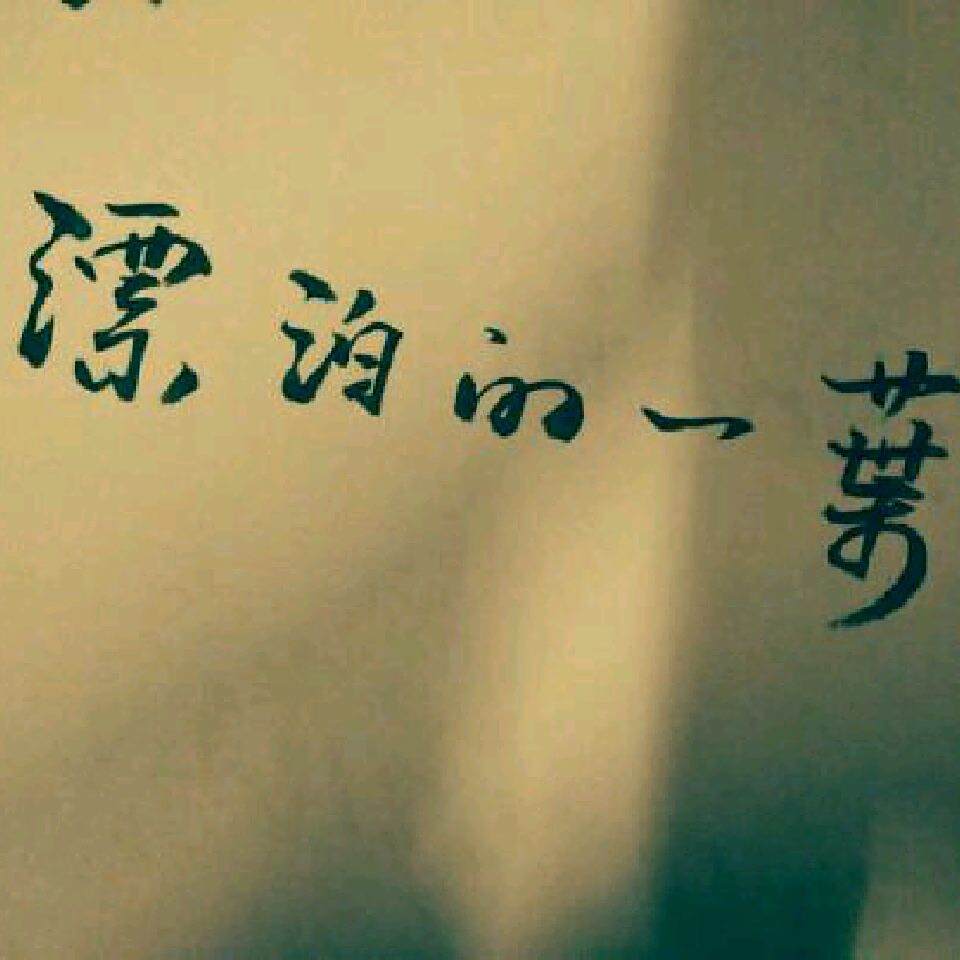 漂泊的一葉